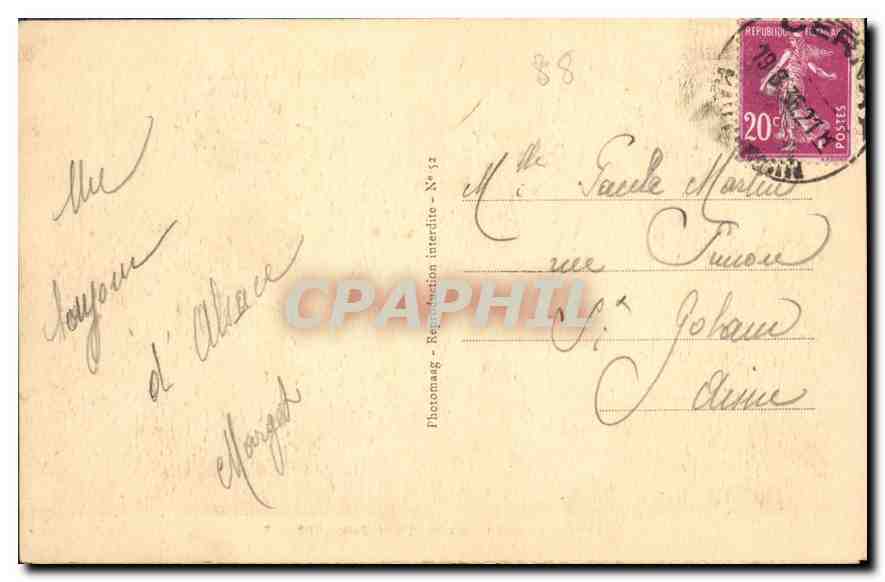 88
CERNAY
REPUBLIQUE FRANÇAISE
20c
POSTES
Un
bonjour
d'Alsace
Margot
Photomaag - Reproduction interdite - N° 52
Mlle Paule Martin
rue
St Gobain
Aisne
CPAPHIL